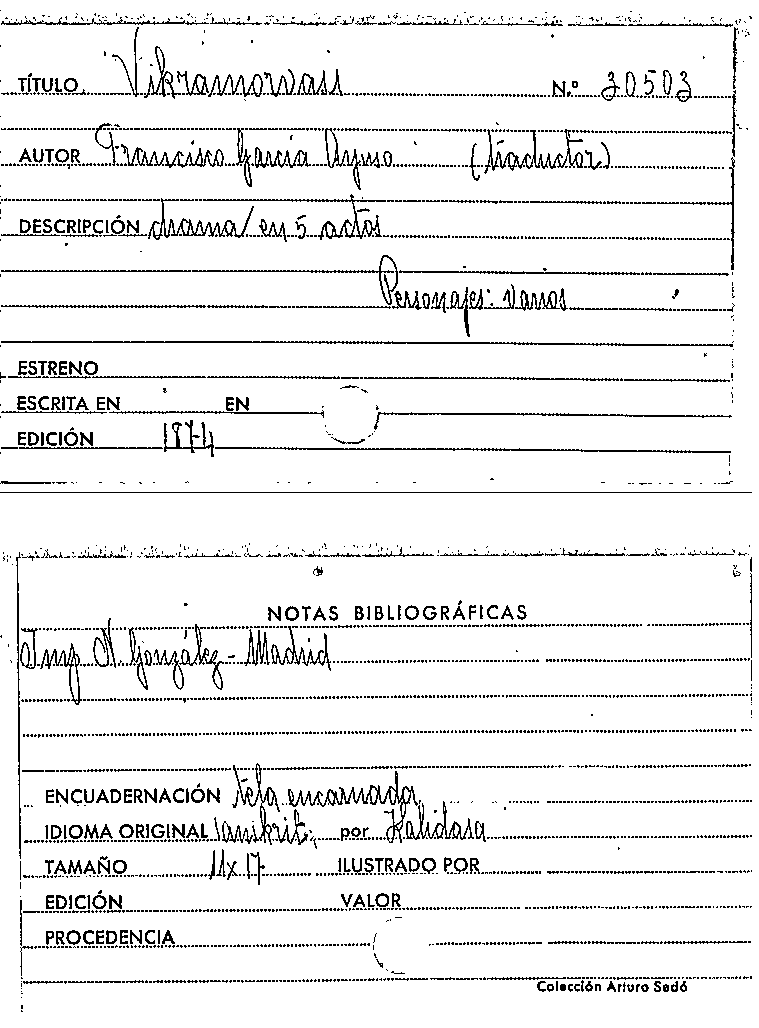 TÍTULO. Vikramorvasi N.º 30503
AUTOR Francisco García Ayuso (traductor)
DESCRIPCIÓN drama/ en 5 actos
Personajes: varios
ESTRENO
ESCRITA EN EN
EDICIÓN 1874
NOTAS BIBLIOGRÁFICAS
Imp N. González - Madrid
ENCUADERNACIÓN tela encarnada
IDIOMA ORIGINAL sanskrit, por Kalidasa
TAMAÑO 11x17 ILUSTRADO POR
EDICIÓN VALOR
PROCEDENCIA
Colección Arturo Sedó